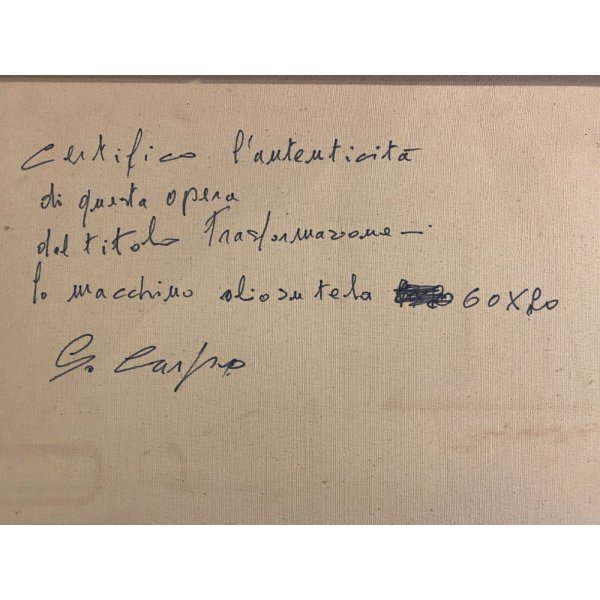 Certifico l'autenticità
di questa opera
dal titolo Trasformazione —
Lo macchino olio su tela 60X80
G. Carpo